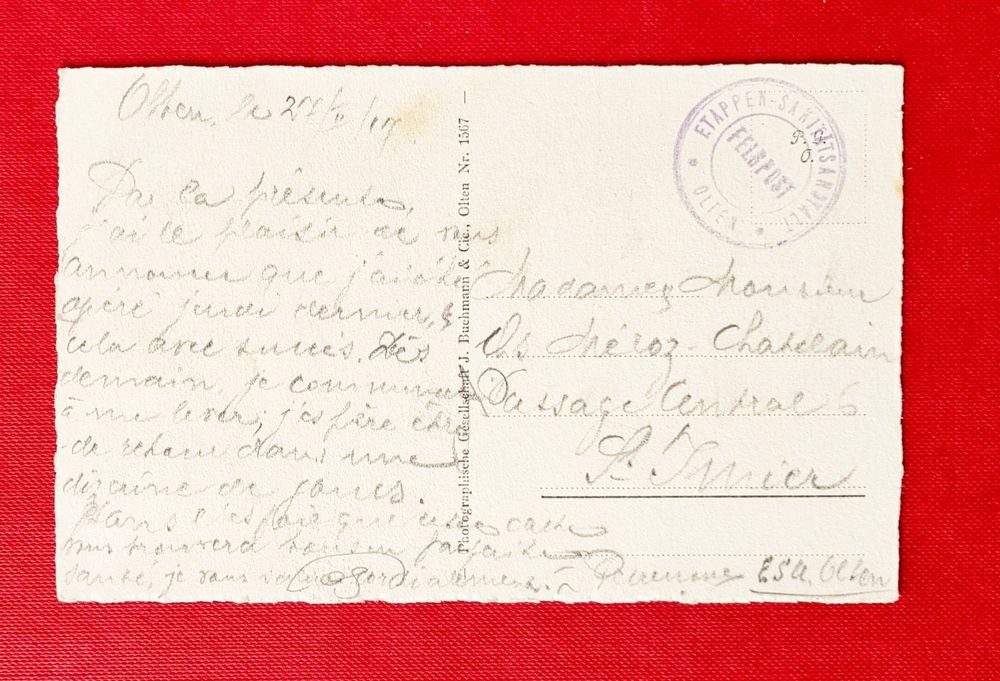 Olten, le 27/II/17
Par la présente,
j'ai le plaisir de vous
annoncer que j'ai été
opéré jeudi dernier, &
cela avec succès. Dès
demain, je commence
à me lever; j'espère être
de retour dans une
dizaine de jours.
Dans l'espoir que cette carte
vous trouvera tous en parfaite
santé, je vous salue cordialement.
ESA. Olten
Photographische Gesellschaft J. Buchmann & Cie., Olten Nr. 1567 —
ETAPPEN-SANITÄTSANSTALT
FELDPOST
* OLTEN *
P. G.
O.
Madame & Monsieur
Méroz-Chatelain
Passage Central 6
St Imier